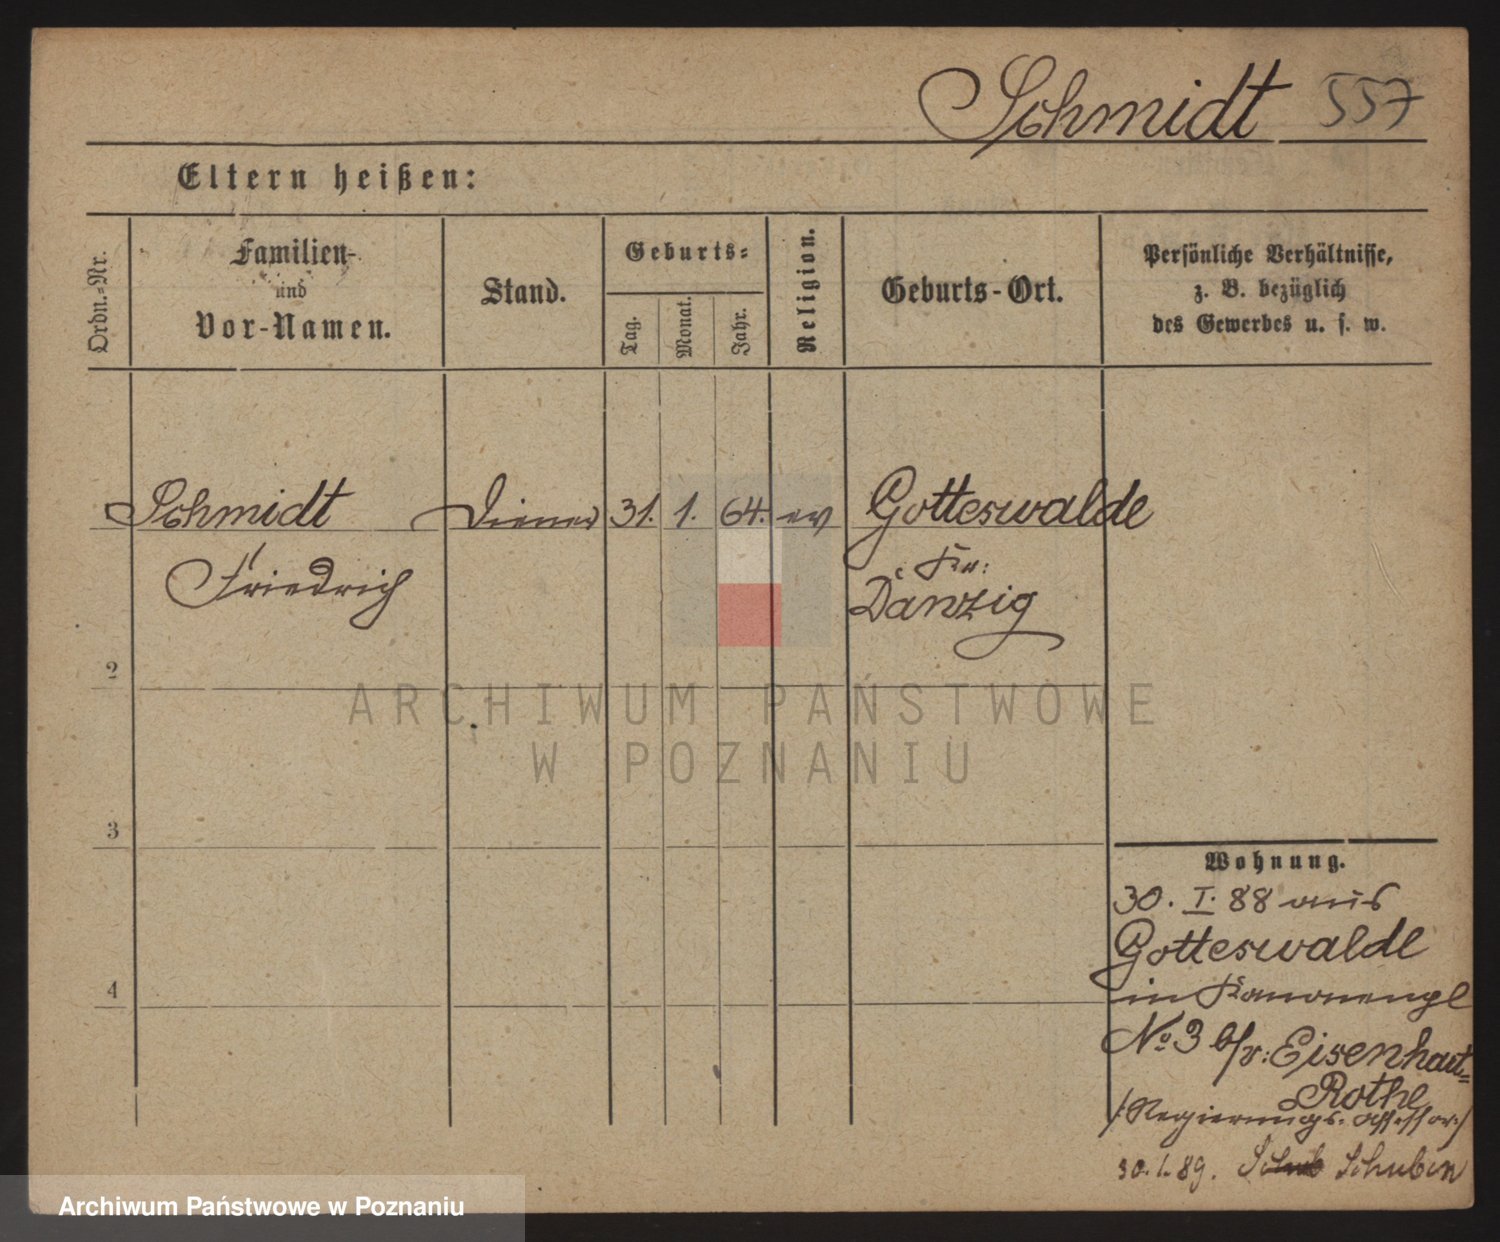 Schmidt 557
Eltern heißen:
Ordn.-Nr.
Familien-
und
Vor-Namen.
Stand.
Geburts-
Tag.
Monat.
Jahr.
Religion.
Geburts-Ort.
Persönliche Verhältnisse,
z. B. bezüglich
des Gewerbes u. s. w.
Schmidt Diener 31. 1. 64. ev Gotteswalde
Friedrich
Kr:
Danzig
2
3
4
ARCHIWUM PAŃSTWOWE
W POZNANIU
Wohnung.
30. I. 88 aus
Gotteswalde
in Kanonenpl
No 3 b/v: Eisenhart-
Rothe
/:Regierungs-Assessor:/
30.1.89. Schub Schubin
Archiwum Państwowe w Poznaniu